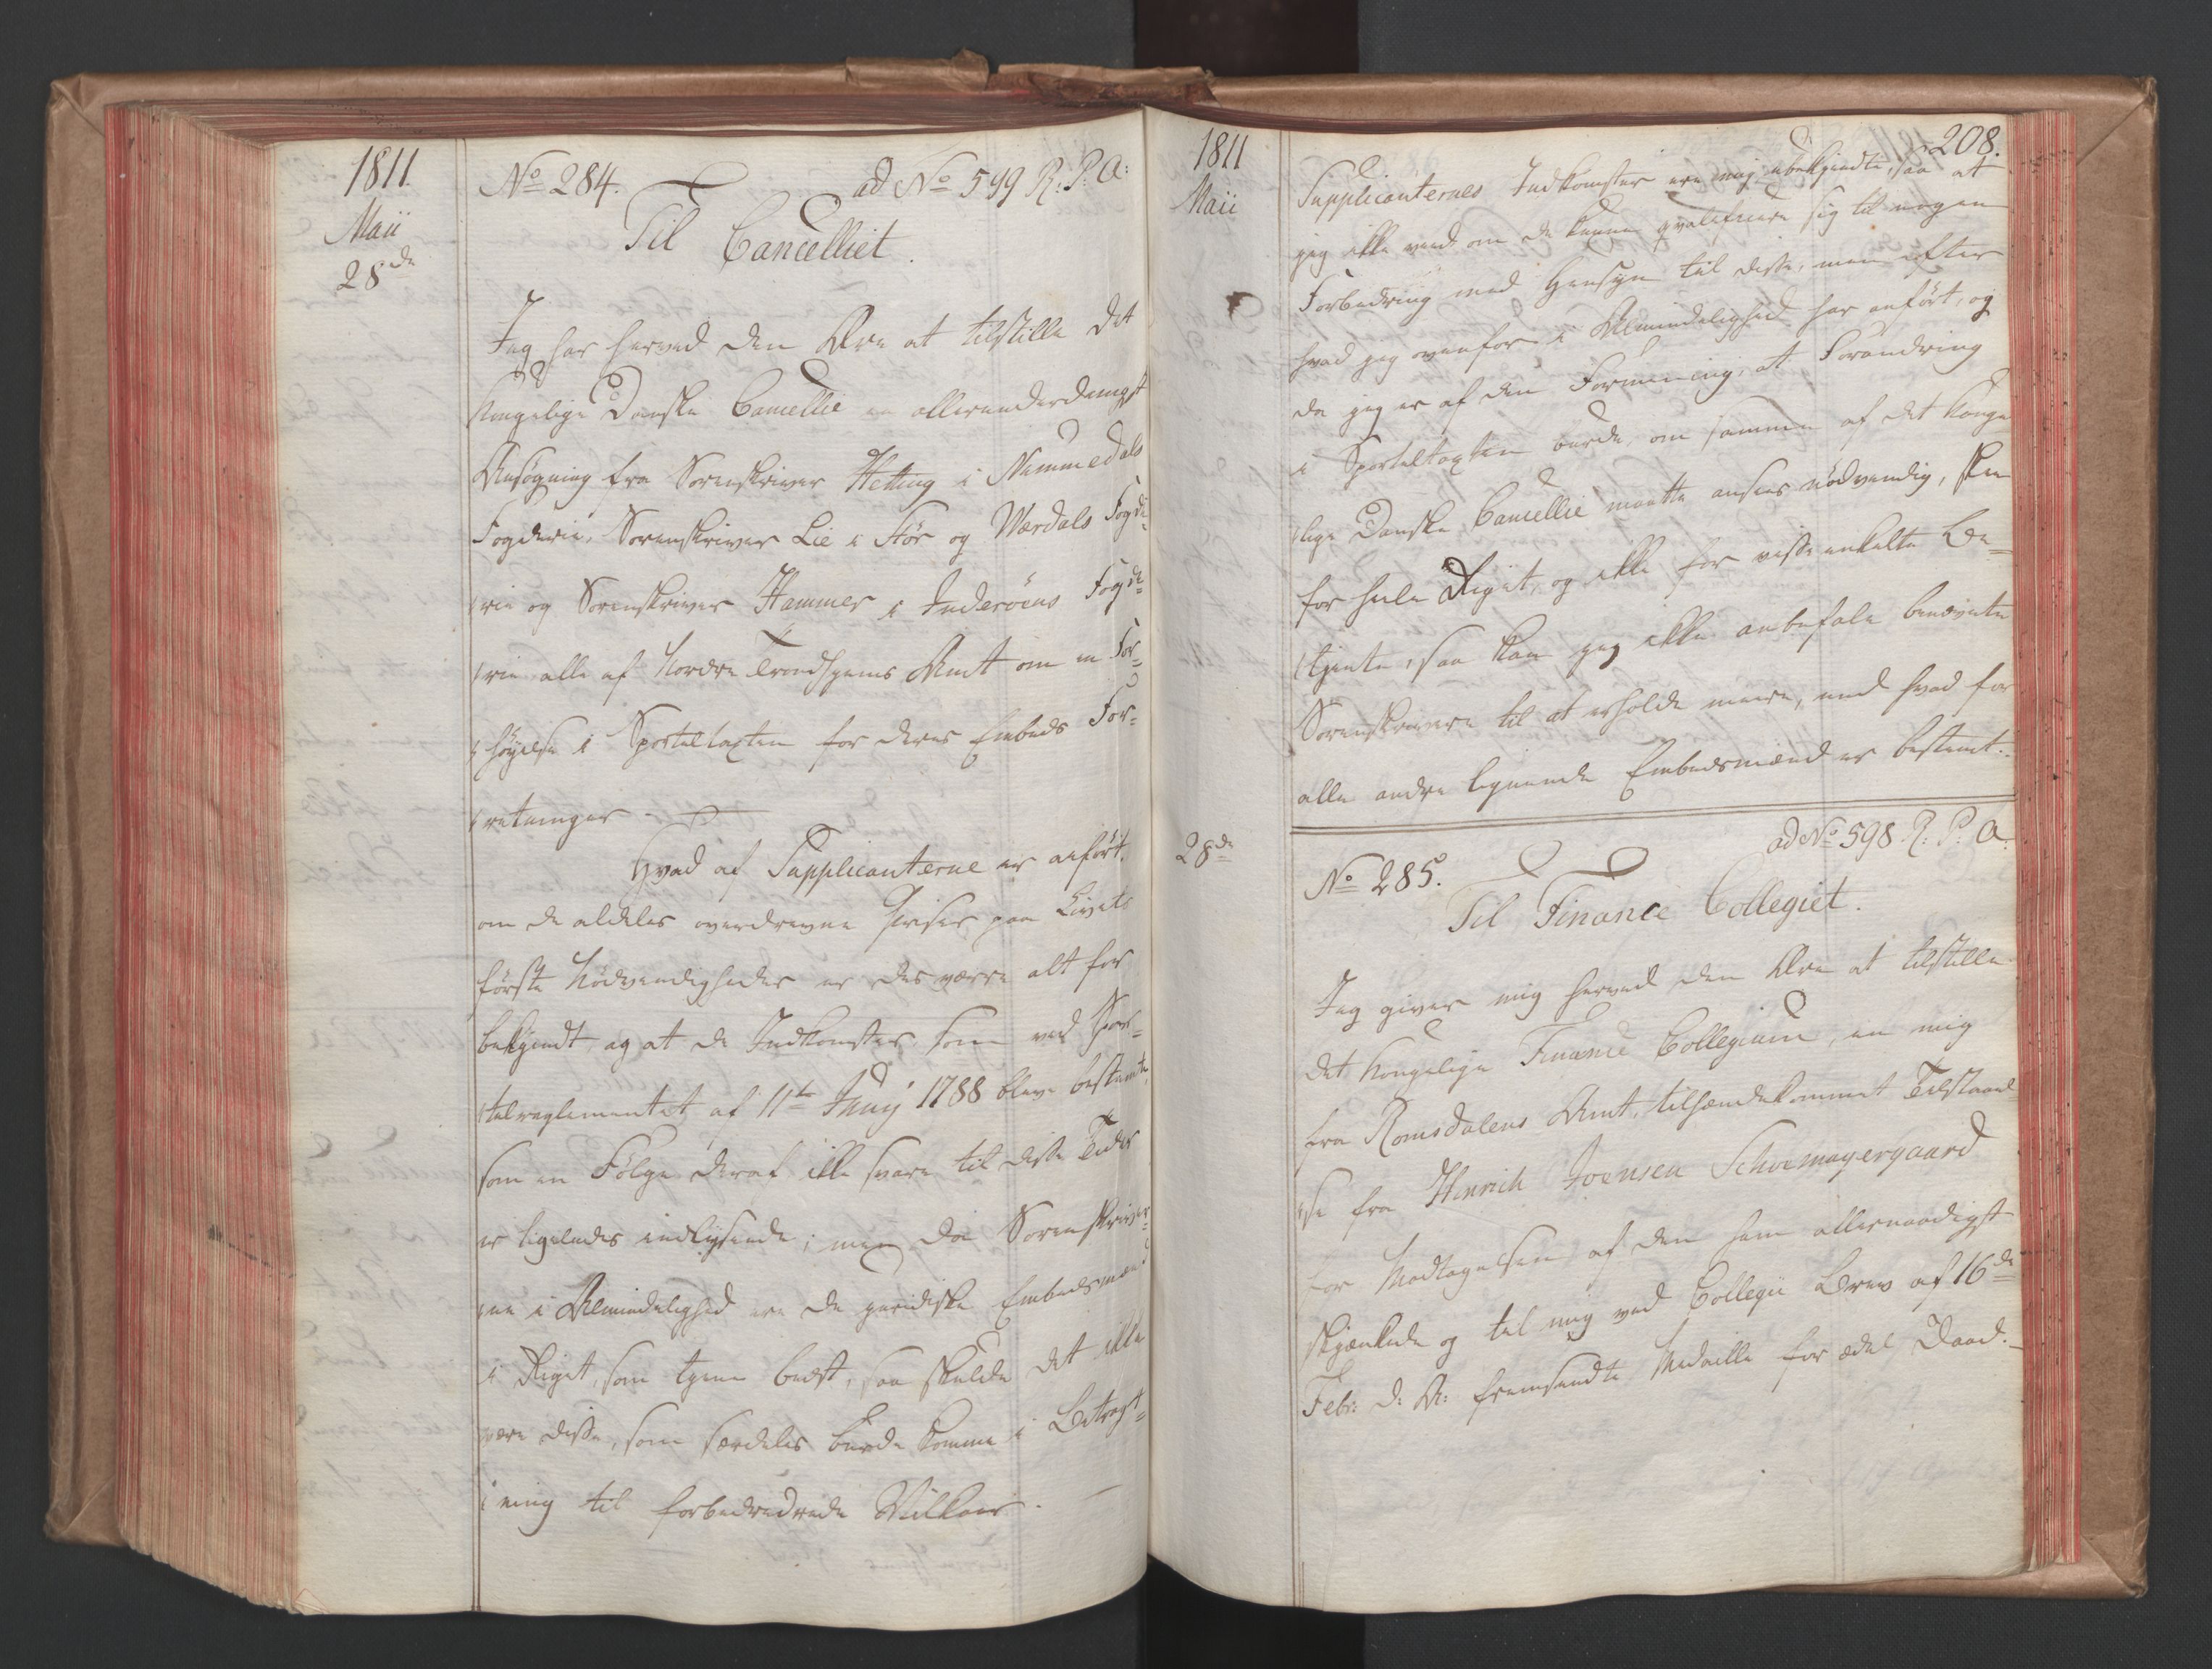 1811.
Maii
28de
No 284.
ad No 599 R: P: A:
Til
Cancelliet.
Jeg har herved den Ære at tilstille det
Kongelige Danske Cancellie en allerunderdanigst
Ansøgning fra Sorenskriver Hetting i Nummedals
Fogderie, Sorenskriver Lie i Stør og Værdals Fogde-
rie og Sorenskriver Hammer i Inderöens Fogde-
rie alle af Nordre Trondhjems Amt om en For-
høyelse i Sporteltaxten for deres Embeds For-
retninger. —
Hvad af Supplicanterne er anført,
om de aldeles overdrevne Priser paa Livets
første Nødvendigheder er desværre alt for
bekjendt, og at de Indkomster som ved Spor-
telreglementet af 11te Junij 1788 bleve bestemte,
som en Følge deraf ikke svare til disse Tider
er ligeledes indlysende; men da Sorenskriver-
ne i Almindelighed ere de juridiske Embedsmænd
i Riget, som tjene bedst, saa skulde det ikke
være disse, som særdeles burde komme i Betragt-
ning til forbedredrede Vilkaar. —
1811
Maii
208.
Supplicanternes Indkomster ere mig ubekjendte, saa at
jeg ikke veed om de kunne qvalificere sig til nogen
Forbedring med Hensyn til disse, men efter
hvad jeg ovenfor i Almindelighed har anført, og
da jeg er af den Formening, at Forandring
i Sporteltaxten burde, om samme af det Konge
lige Danske Cancellie maatte ansees nødvendig, skee
for hele Riget, og ikke for visse enkelte Be-
tjente, saa kan jeg ikke anbefale benævnte
Sorenskrivere til at erholde meere, end hvad for
alle andre lignende Embedsmænd er bestemt.
28de
No 285.
ad No 598 R: P: A:
Til Finance Collegiet.
Jeg giver mig herved den Ære at tilstille
det Kongelige Finance Collegium, en mig
fra Romsdalens Amt, tilhændekommet Tilstaael
se fra Hinrich Joensen Schoemagergaard
for Modtagelsen af den ham allernaadigst
skjænkede og til mig ved Collegii Brev af 16de
Febr: d: A: fremsendte Medaille for ædel Daad. —